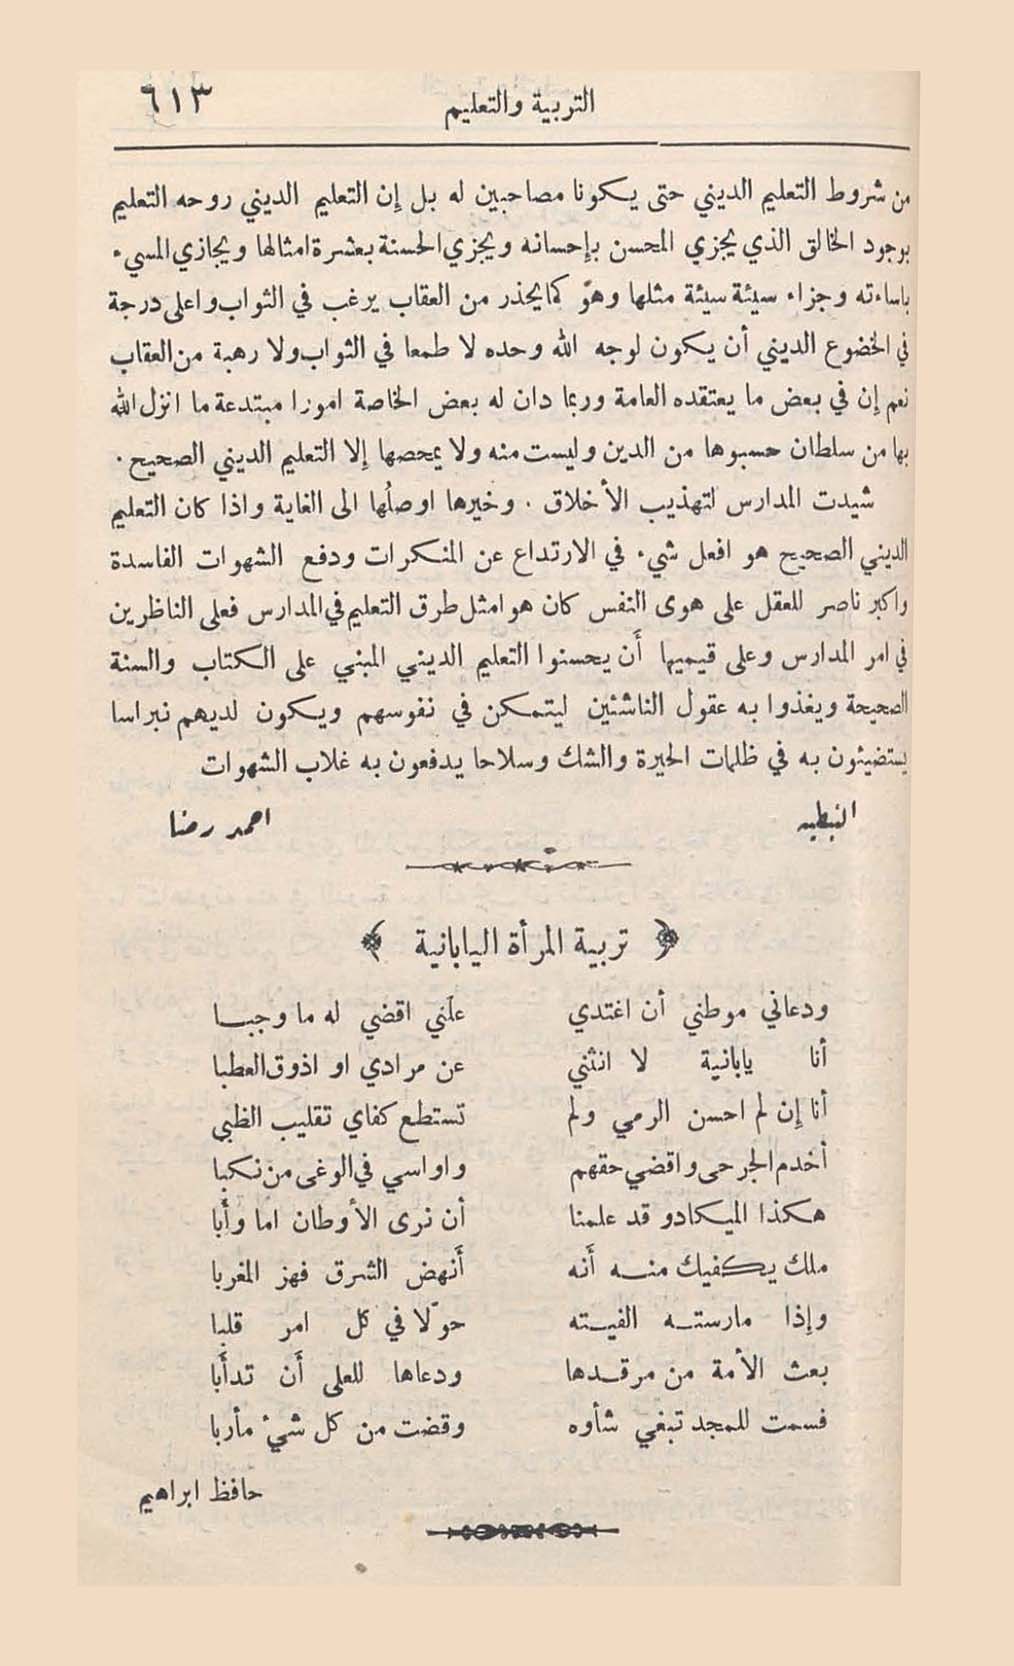 التربية والتعليم ٦١٣
من شروط التعليم الديني حتى يكونا مصاحبين له بل إن التعليم الديني روحه التعليم
بوجود الخالق الذي يجزي المحسن بإحسانه ويجزي الحسنة بعشرة امثالها ويجازي المسيء
باساءته وجزاء سيئة سيئة مثلها وهو كما يحذر من العقاب يرغب في الثواب واعلى درجة
في الخضوع الديني أن يكون لوجه الله وحده لا طمعا في الثواب ولا رهبة من العقاب
نعم إن في بعض ما يعتقده العامة وربما دان له بعض الخاصة امورا مبتدعة ما انزل الله
بها من سلطان حسبوها من الدين وليست منه ولا يمحصها إلا التعليم الديني الصحيح .
شيدت المدارس لتهذيب الأخلاق . وخيرها اوصلُها الى الغاية واذا كان التعليم
الديني الصحيح هو افعل شيء في الارتداع عن المنكرات ودفع الشهوات الفاسدة
واكبر ناصر للعقل على هوى النفس كان هو امثل طرق التعليم في المدارس فعلى الناظرين
في امر المدارس وعلى قيميها أَن يحسنوا التعليم الديني المبني على الكتاب والسنة
الصحيحة ويغذوا به عقول الناشئين ليتمكن في نفوسهم ويكون لديهم نبراسا
يستضيئون به في ظلمات الحيرة والشك وسلاحا يدفعون به غلاب الشهوات
النبطيه احمد رضا
﴿ تربية المرأة اليابانية ﴾
ودعاني موطني أن اغتدي علَني اقضي له ما وجبا
أنا يابانية لا انثني عن مرادي او اذوق العطبا
أنا إن لم احسن الرمي ولم تستطع كفاي تقليب الظبي
أخدم الجرحى واقضي حقهم واواسي في الوغى من نكبا
هكذا الميكادو قد علمنا أن نرى الأوطان اما وأَبا
ملك يكفيك منه أَنه أَنهض الشرق فهز المغربا
وإذا مارسته الفيته حوّلا في كل امر قلبا
بعث الأمة من مرقدها ودعاها للعلى أَن تدأَبا
فسمت للمجد تبغي شأوه وقضت من كل شيءٍ مأربا
حافظ ابراهيم